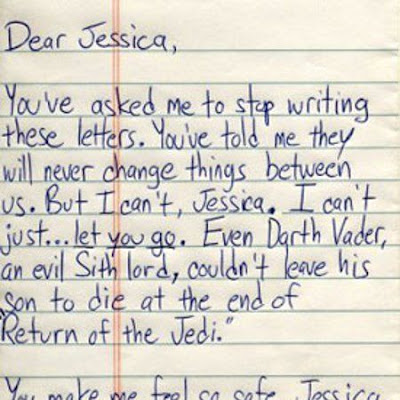 Dear Jessica,
You've asked me to stop writing
these letters. You've told me they
will never change things between
us. But I can't, Jessica. I can't
just...let you go. Even Darth Vader,
an evil Sith lord, couldn't leave his
son to die at the end of
"Return of the Jedi."
You make me feel so safe, Jessica